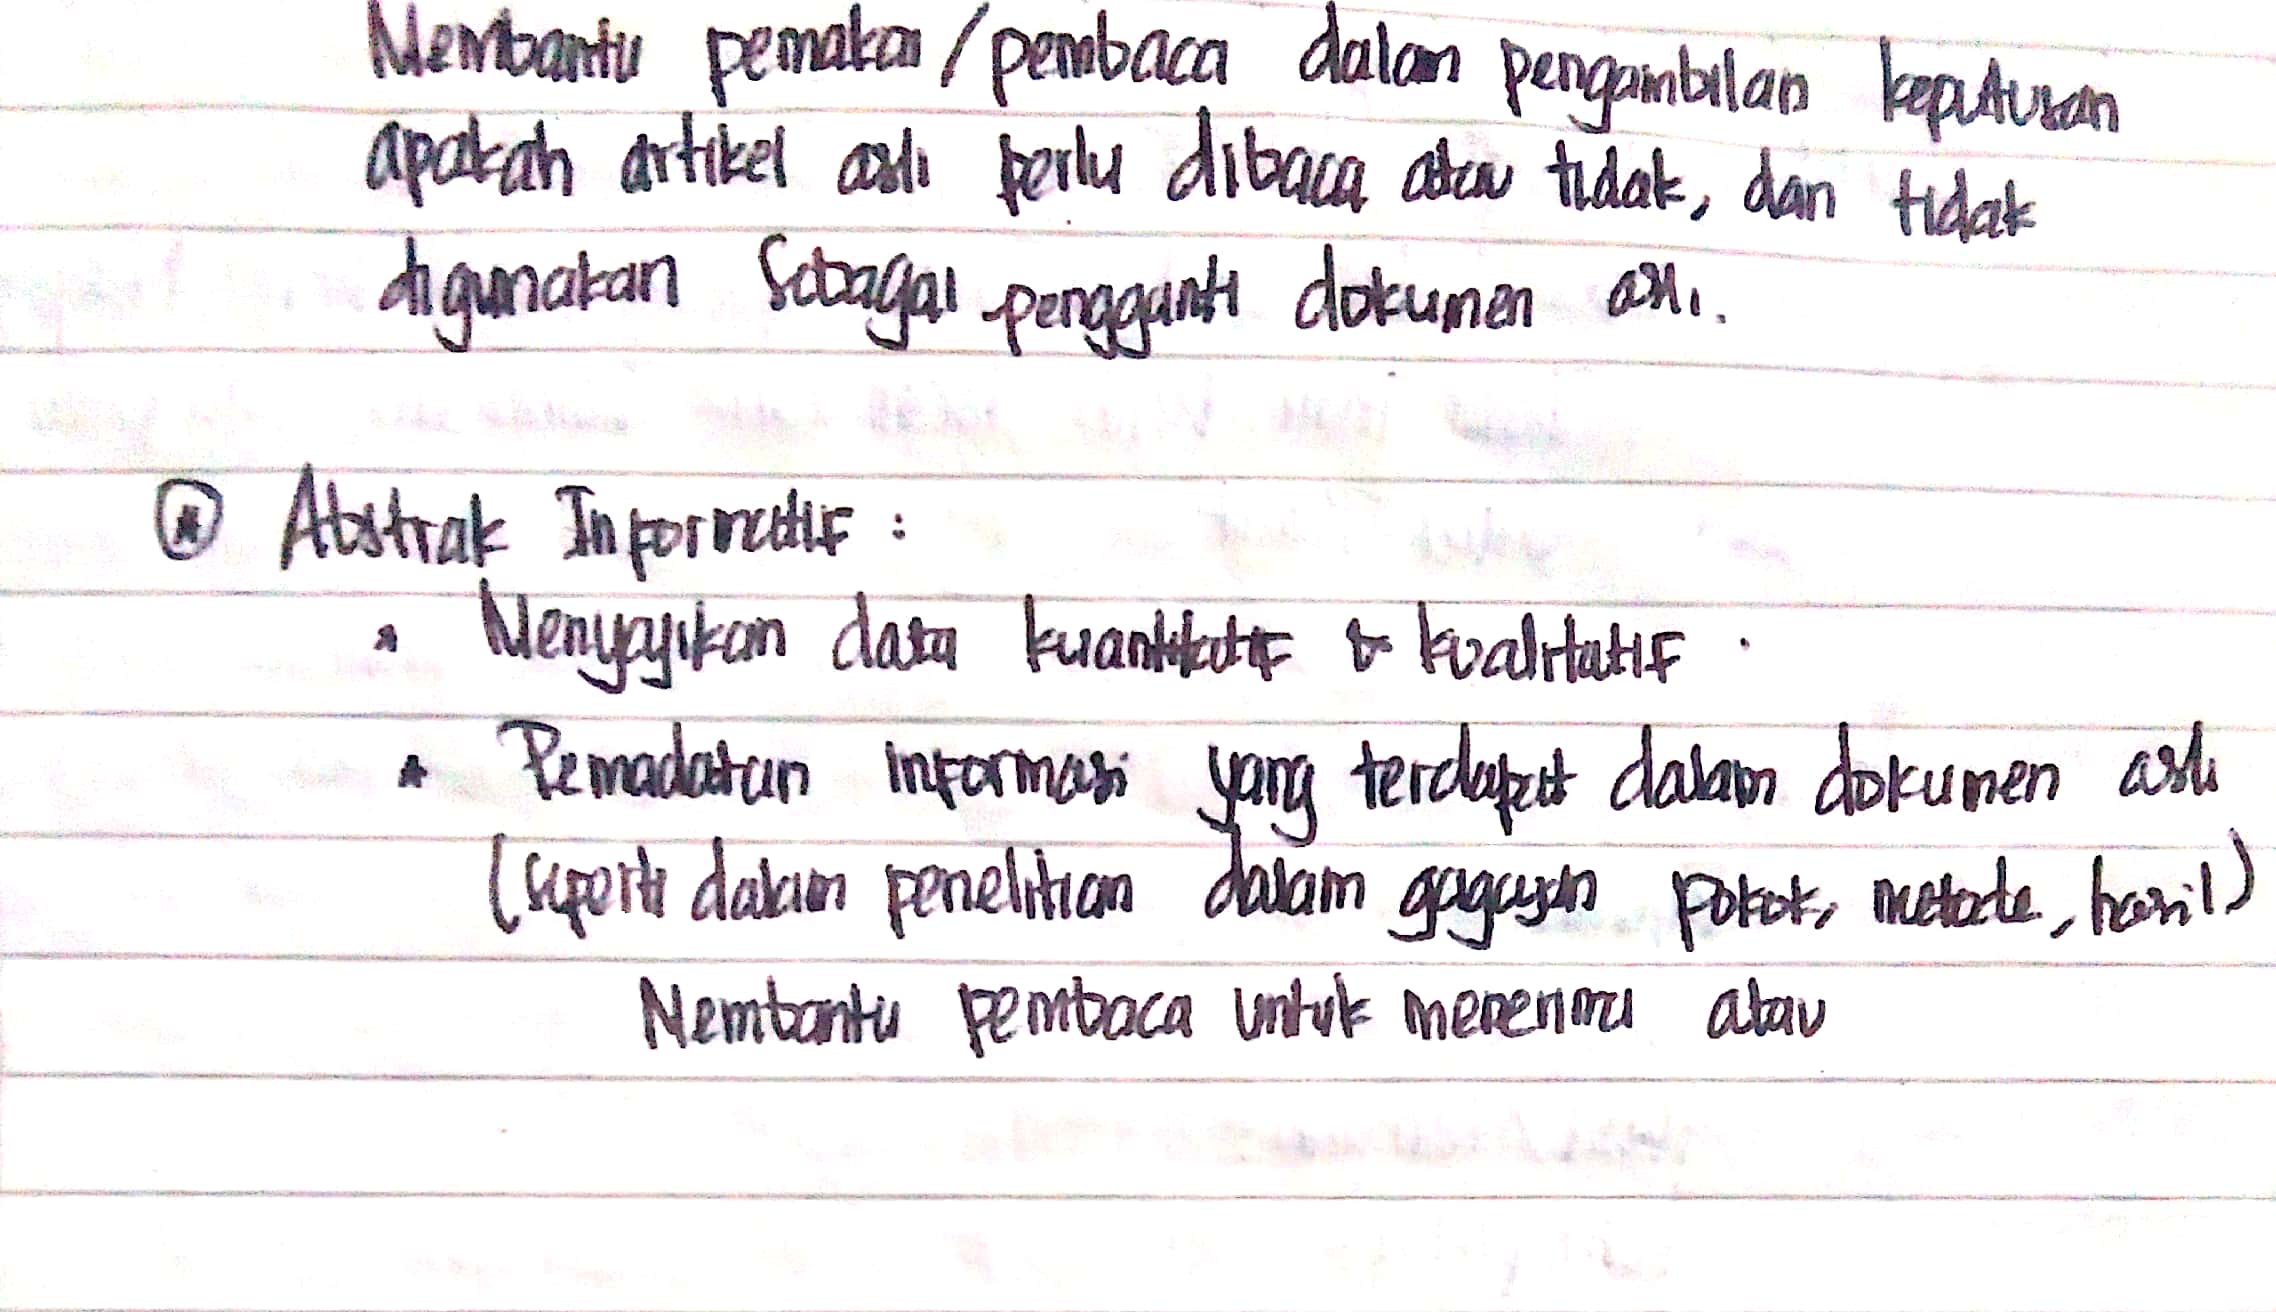 Membantu pemakai / pembaca dalam pengambilan keputusan
apakah artikel asli perlu dibaca atau tidak, dan tidak
digunakan sebagai pengganti dokumen asli.
Abstrak Informatif :
Menyajikan data kuantitatif & kualitatif .
* Pemadatan informasi yang terdapat dalam dokumen asli
(seperti dalam penelitian dalam gagasan pokok, metode, hasil)
Membantu pembaca untuk menerima atau